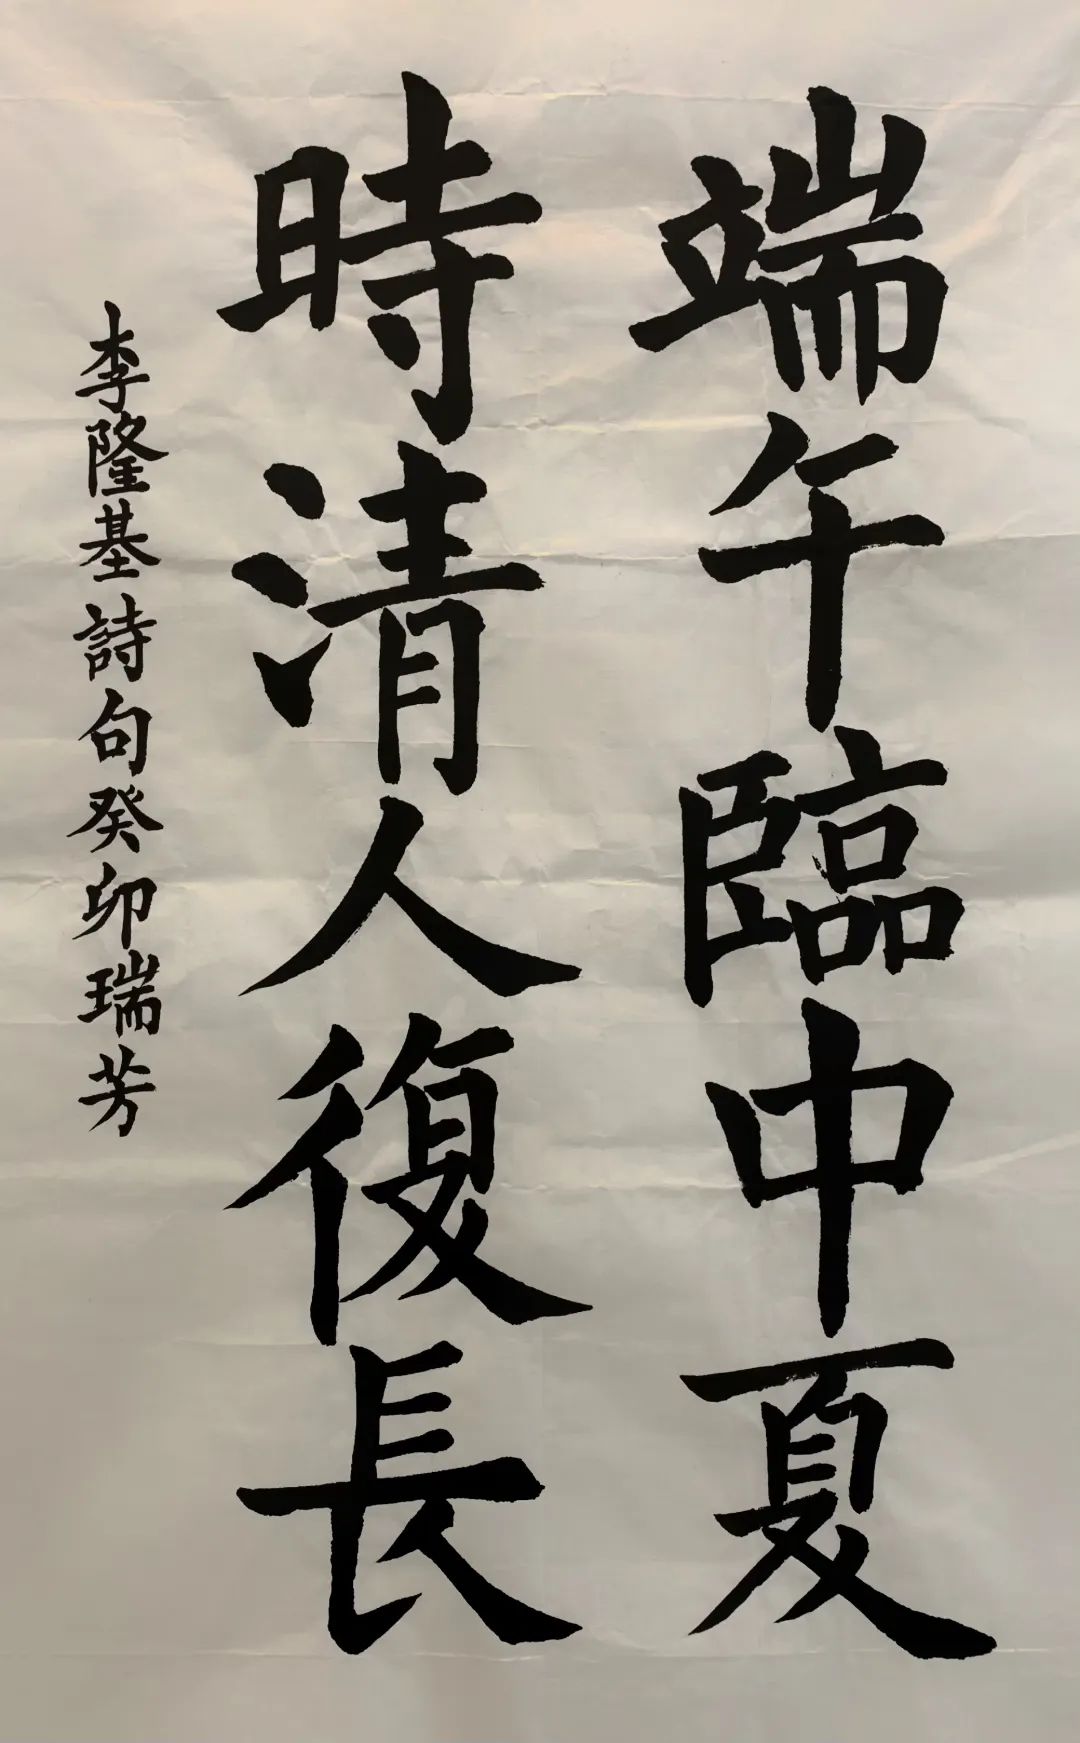 端午臨中夏
時清人復長
李隆基詩句癸卯瑞芳